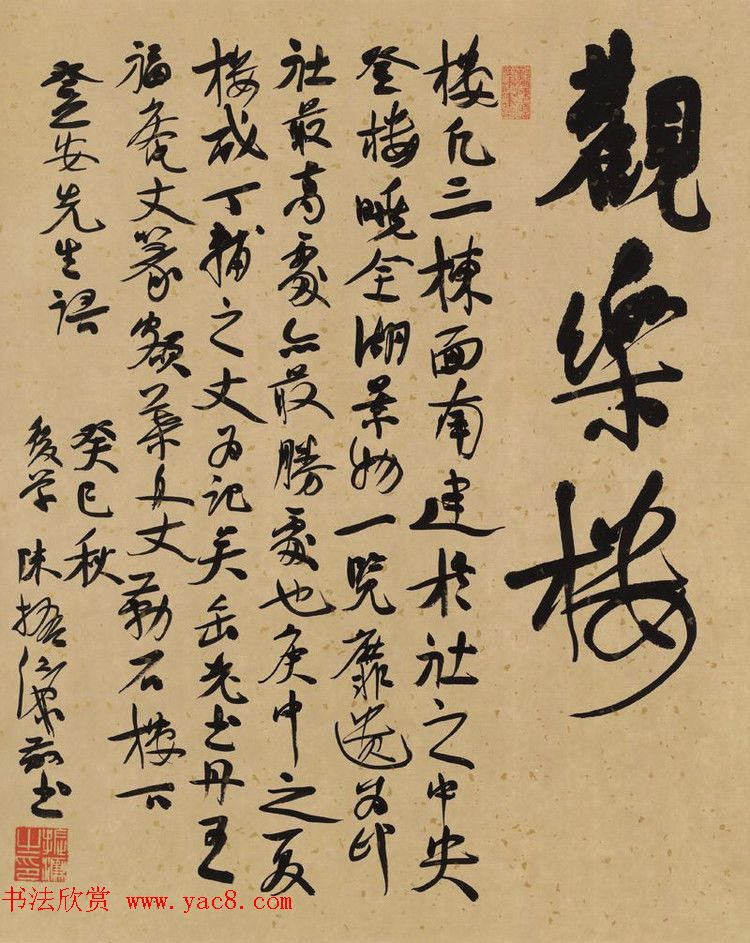 觀樂樓
樓凡三棟面南建於社之中央
登樓曉全湖景物一覽靡遺為印
社最高處亦最勝處也庚申之夏
樓成丁輔之丈為記吴缶老書丹王
福庵丈篆額葉舟丈勒石樓下
登安先生語
癸巳秋
後学陳振濂敬書
书法欣赏 www.yac8.com